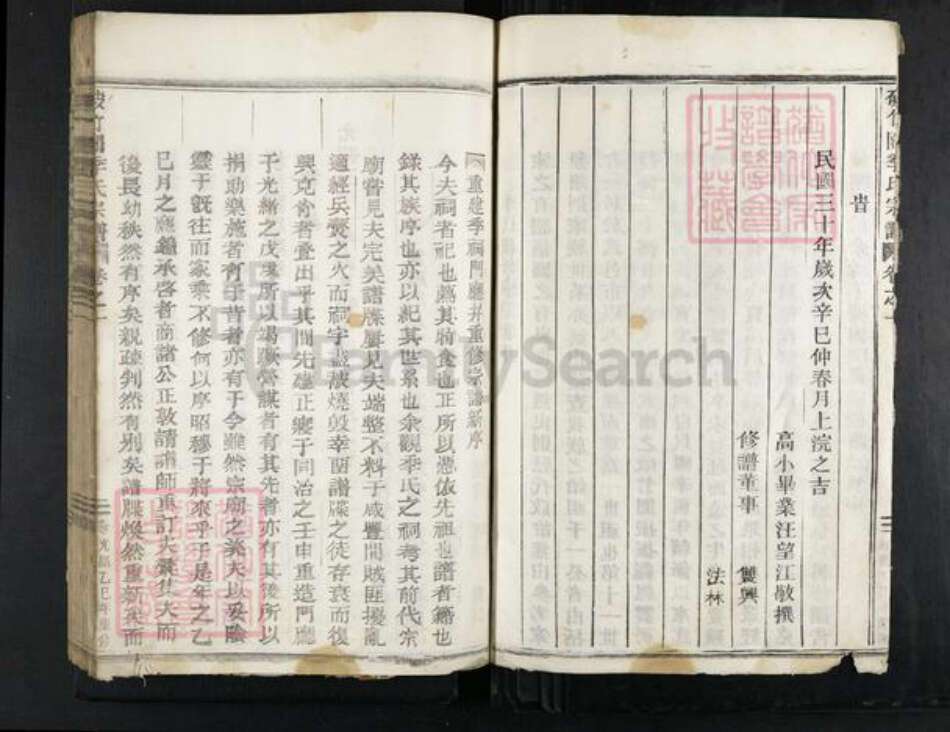 民國三十年歲次辛巳仲春月上浣之吉
高小畢業汪望江敬撰
修譜董事 雙興
法林
重建季祠門廳并重修宗譜新序
今夫祠者祀也薦其特食也正所以憑依先祖也譜者籍也
錄其族序也亦以紀其世系也余觀季氏之祠考其前代宗
廟嘗見夫完美譜牒屢見夫端整不料于咸豐間賊匪擾亂
適經兵燹之火而祠宇盡被燒毀幸留譜牒之徒存衰而復
興克肯者叠出乎其間先建正寢于同治之壬申重造門廳
于光緒之戊戌所以竭誠營謀者有其先者亦有其後所以
捐助樂施者有于昔者亦有于今雖然宗廟之美夫以妥陰
靈于既往而家乘不修何以序昭穆于將來乎于是年之乙
巳月之應鐘承啓者商諸公正敦請譜師重訂夫彙集夫而
後長幼秩然有序矣親疏判然有別矣譜牒煥然重新矣而
季氏宗譜
卷之一
光緒乙巳年重
FamilySearch